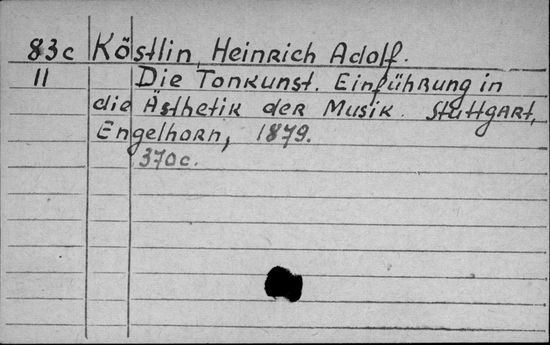 83c Köstlin, Heinrich Adolf.
11 Die Tonkunst. Einführung in
die Ästhetik der Musik. Stuttgart,
Engelhorn, 1879.
370c.